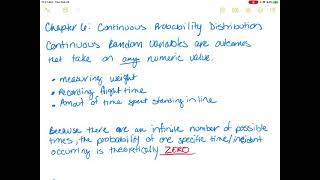 Chapter 6: Continuous Probability Distribution
Continuous Random Variables are outcomes
that take on any numeric value.
• measuring weight
• Recording flight time
• Amount of time spent standing in line
Because there are an infinite number of possible
times, the probability of one specific time/incident
occurring is theoretically ZERO